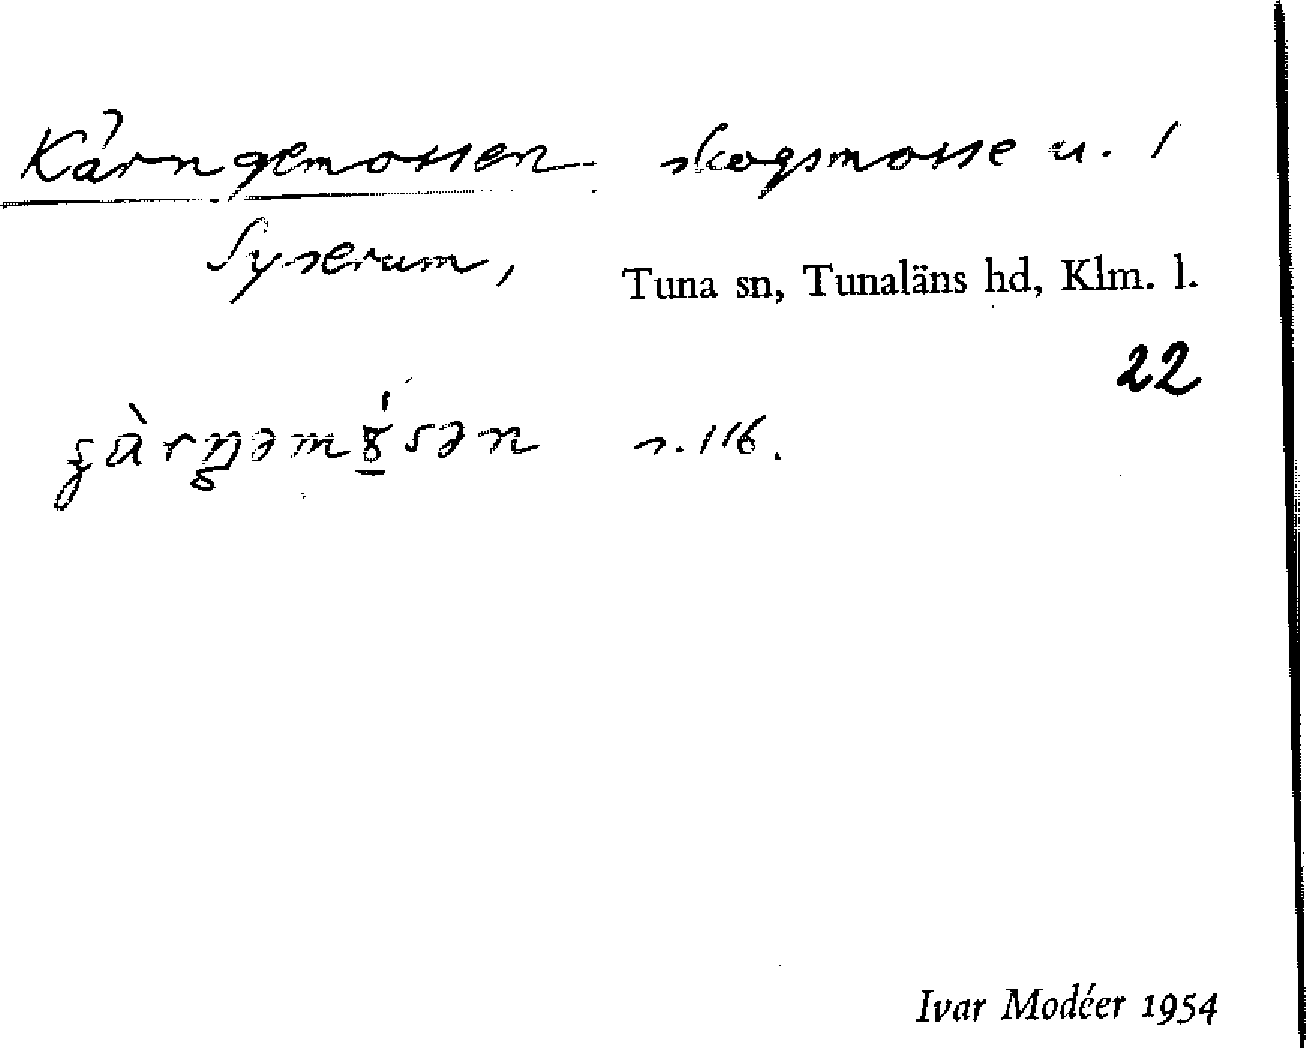 Kärngemossen skogsmosse u. /
Syserum, Tuna sn, Tunaläns hd, Klm. l.
22
s. 116.
Ivar Modéer 1954